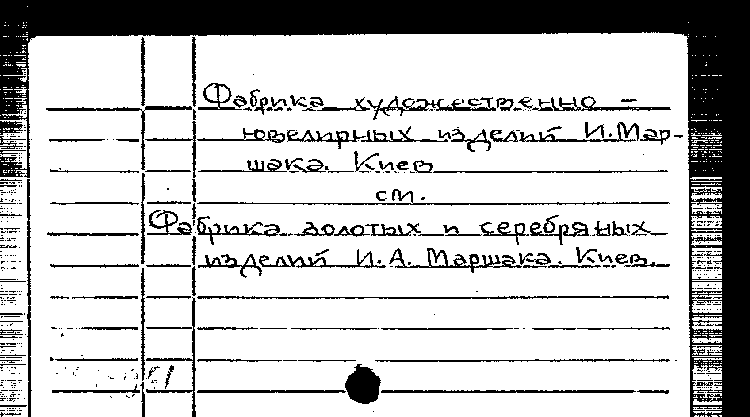 Фабрика художественно -
ювелирных изделий И.Мар-
шака. Киев
см.
Фабрика золотых и серебряных
изделий И. А. Маршака. Киев.